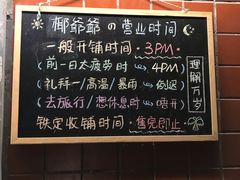 椰爷爷の营业时间
一般开铺时间·3PM·
(前一日太疲劳时 → 4PM)
(礼拜一/高温/暴雨 → 例迟)
(去旅行/想休息时 → 唔开)
铁定收铺时间·售完即止·
理解万岁